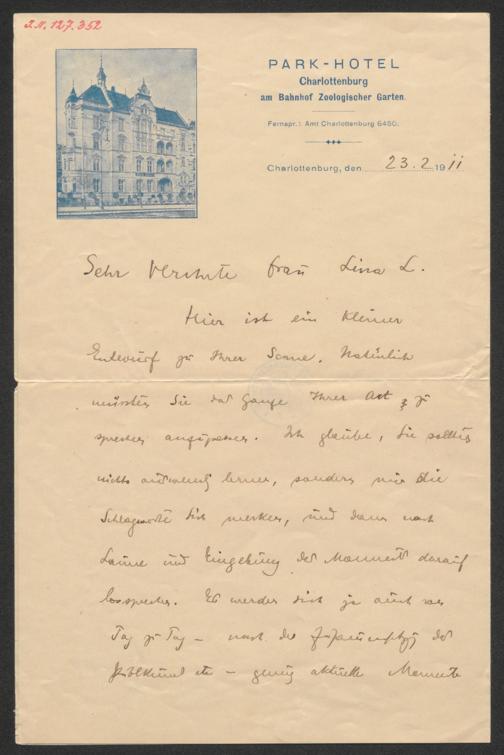 I.N. 127.352
PARK-HOTEL
Charlottenburg
am Bahnhof Zoologischer Garten.
Fernspr.: Amt Charlottenburg 6450.
Charlottenburg, den 23.2.1911
Sehr Verehrte Frau Lina L.
Hier ist ein kleiner
Entwurf zu Ihrer Scene. Natürlich
müssten Sie das Ganze Ihrer Art zu
sprechen anzupassen. Ich glaube, Sie sollten
nichts auswendig lernen, sondern nur die
Schlagworte sich merken, und dann nach
Laune und Eingebung des Moments darauf
lossprechen. Es werden sich ja auch von
Tag zu Tag – nach der Zusammensetzung des
Publikums etc – genug aktuelle Momente